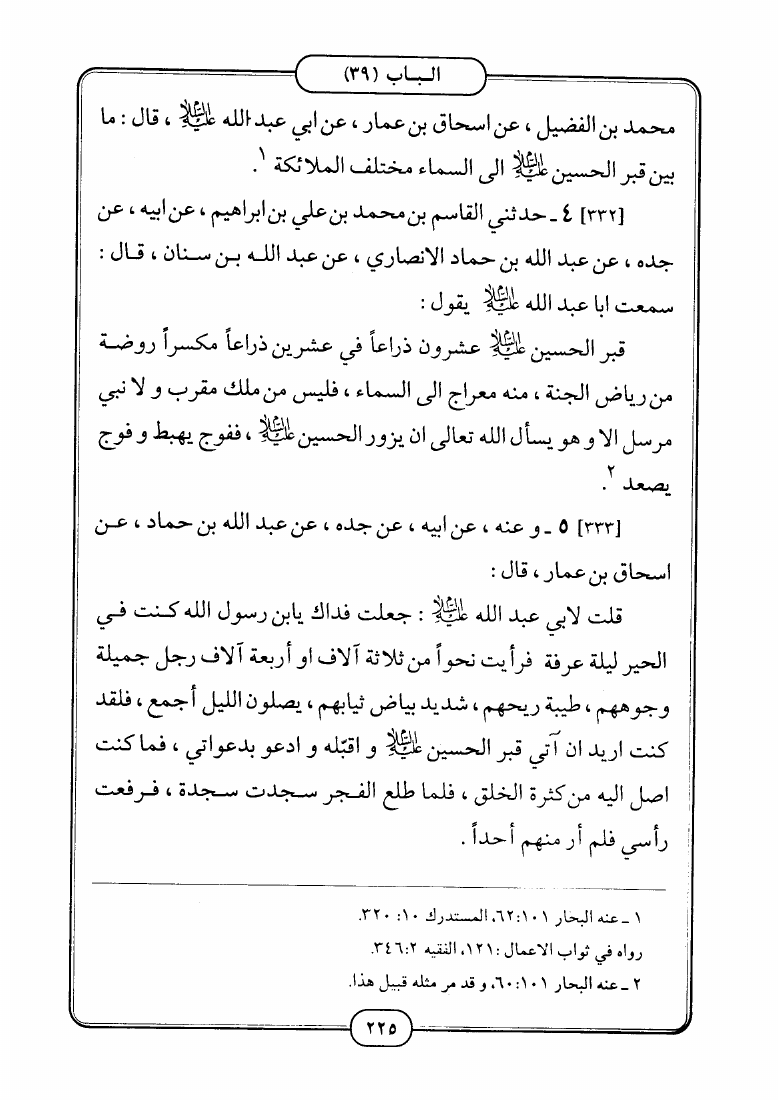 الـبـاب (٣٩)
محمد بن الفضيل ، عن اسحاق بن عمار ، عن ابي عبد الله عليه السلام ، قال : ما
بين قبر الحسين عليه السلام الى السماء مختلف الملائكة ١.
[٣٣٢] ٤ ـ حدثني القاسم بن محمد بن علي بن ابراهيم ، عن ابيه ، عن
جده ، عن عبد الله بن حماد الانصاري ، عن عبد الله بن سنان ، قال :
سمعت ابا عبد الله عليه السلام يقول :
قبر الحسين عليه السلام عشرون ذراعاً في عشرين ذراعاً مكسراً روضة
من رياض الجنة ، منه معراج الى السماء ، فليس من ملك مقرب و لا نبي
مرسل الا و هو يسأل الله تعالى ان يزور الحسين عليه السلام ، ففوج يهبط و فوج
يصعد ٢.
[٣٣٣] ٥ ـ و عنه ، عن ابيه ، عن جده ، عن عبد الله بن حماد ، عن
اسحاق بن عمار ، قال :
قلت لابي عبد الله عليه السلام : جعلت فداك يابن رسول الله كنت في
الحير ليلة عرفة فرأيت نحواً من ثلاثة آلاف او أربعة آلاف رجل جميلة
وجوههم ، طيبة ريحهم ، شديد بياض ثيابهم ، يصلون الليل أجمع ، فلقد
كنت اريد ان آتي قبر الحسين عليه السلام و اقبّله و ادعو بدعواتي ، فما كنت
اصل اليه من كثرة الخلق ، فلما طلع الفجر سجدت سجدة ، فرفعت
رأسي فلم أر منهم أحداً .
١ ـ عنه البحار ١٠١:٦٢، المستدرك ١٠: ٣٢٠.
رواه في ثواب الاعمال :١٢١، الفقيه ٣٤٦:٢.
٢ ـ عنه البحار ١٠١:٦٠، و قد مر مثله قبيل هذا.
٢٢٥